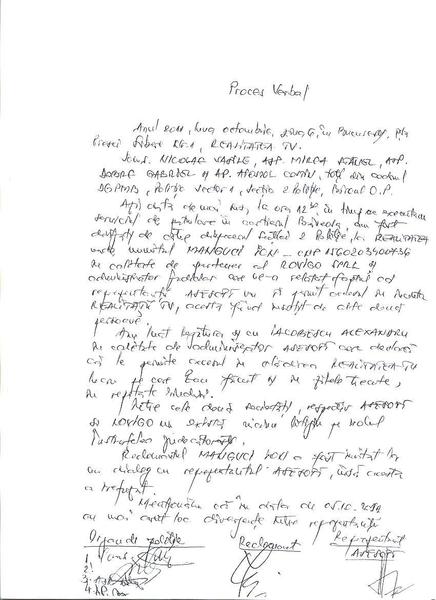 Proces Verbal
Anul 2011, luna octombrie, ziua 6, în București, P-ța
Presei Libere nr. 1, REALITATEA TV.
Subs. NICOLAE VASILE, AG. MIREA
GABRIEL și AG. COSTIN, toți din cadrul
DGPMB, Poliția Sector 1, Secția 2 Poliție, Biroul O.P.
Aflați astăzi de mai sus, la ora 12, în timp ce executam
serviciul de patrulare în cartierul Băneasa, am fost
de către dispecerul Secției 2 Poliție, la REALITATEA
unde numitul MANGUCI ION - CNP
în calitate de al ROVIGO SRL și
administrator judiciar care ne-a relatat faptul că
reprezentanții ASESOFT nu îi permit accesul în incinta
REALITATEA TV, acesta fiind însoțit de alte două
persoane.
Am luat legătura și cu IACOBESCU ALEXANDRU
în calitate de administrator ASESOFT care declară
că le permite accesul în clădirea REALITATEA TV
lucru pe care l-au făcut și în zilele trecute,
în repetate rânduri.
Între cele două societăți, respectiv ASESOFT
și ROVIGO există litigiu pe rolul
instanțelor judecătorești.
Reclamantul MANGUCI ION a fost invitat la
un dialog cu reprezentantul ASESOFT, însă acesta
a refuzat.
Menționăm că în data de 05.10.
au mai avut loc divergențe între reprezentanți
Organe de poliție Reclamant Reprezentant
ASESOFT
1.
2.
3. Ag.
4. Ag.